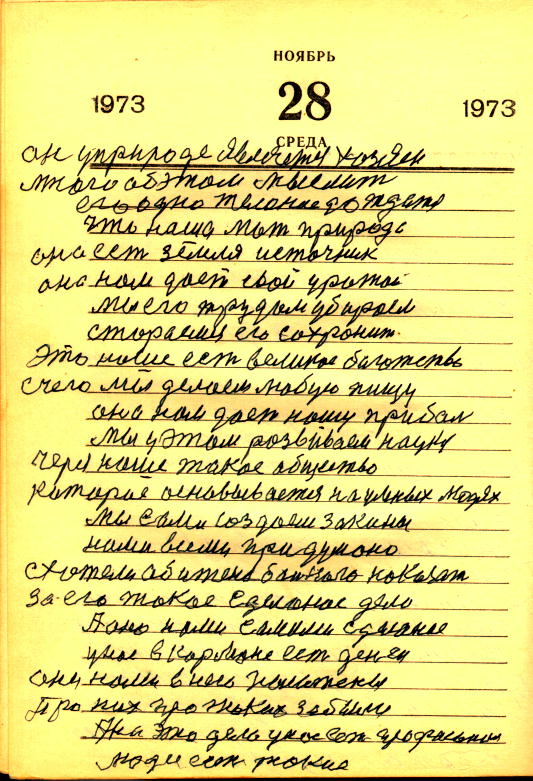 НОЯБРЬ
1973 28 1973
СРЕДА
он у природе является хозяен
много об этом мыслит
его одно желание дождать
что наша мать природа
она ест земля источник
она нам дает свой урожай
мы его трудом убираем
стараемся его сохранит.
Это наше ест великое богатство
с чего мы делаем любую пищу
она нам дает нашу прибал
мы у этом розвиваем науку
через наше такое общество
которое основывается на умных людях
мы сами создаем законы
нами всеми придумано
схотели обиженобаного показат
за его такое сделаное дело
А оно нами самими сделаное
у нас в кармане ест денги
они нами в него
Про них про таких забыли
А на это дело у нас ест
люди ест такие